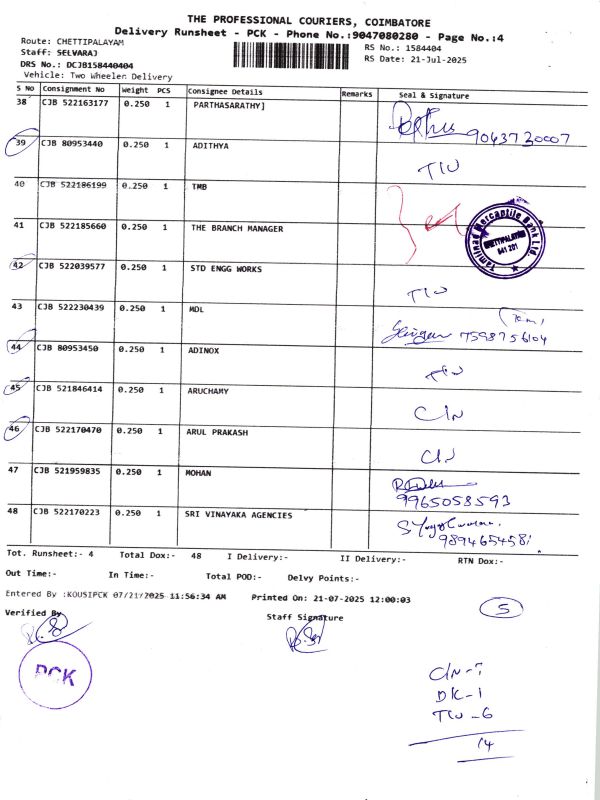 THE PROFESSIONAL COURIERS, COIMBATORE
Delivery Runsheet - PCK - Phone No.:9047080280 - Page No.:4
Route: CHETTIPALAYAM
Staff: SELVARAJ
DRS No.: DCJB158440404
Vehicle: Two Wheeler Delivery
RS No.: 1584404
RS Date: 21-Jul-2025
S No Consignment No Weight PCS Consignee Details Remarks Seal & Signature
38 CJB 522163177 0.250 1 PARTHASARATHY] 9043730007
39 CJB 80953440 0.250 1 ADITHYA TW
40 CJB 522186199 0.250 1 TMB
41 CJB 522185660 0.250 1 THE BRANCH MANAGER
Tamilnad Mercantile Bank Ltd.
CHETTIPALAYAM
641 201
42 CJB 522039577 0.250 1 STD ENGG WORKS TW
43 CJB 522230439 0.250 1 MDL 7598756104
44 CJB 80953450 0.250 1 ADINOX TW
45 CJB 521846414 0.250 1 ARUCHAMY C/N
46 CJB 522170470 0.250 1 ARUL PRAKASH C/N
47 CJB 521959835 0.250 1 MOHAN 9965058593
48 CJB 522170223 0.250 1 SRI VINAYAKA AGENCIES
Tot. Runsheet:- 4 Total Dox:- 48 I Delivery:- II Delivery:- RTN Dox:-
Out Time:- In Time:- Total POD:- Delvy Points:-
Entered By :KOUSIPCK 07/21/2025 11:56:34 AM Printed On: 21-07-2025 12:00:03
Verified By Staff Signature
5
PCK
C/N-7
DK-1
TW-6
14